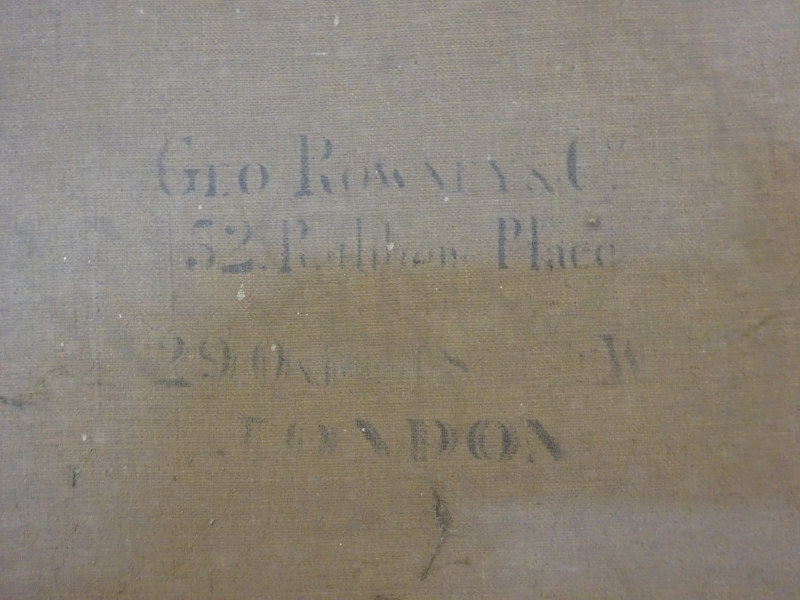 Geo Rowney & Co.
52. Rathbone Place
29 Oxford S W
LONDON